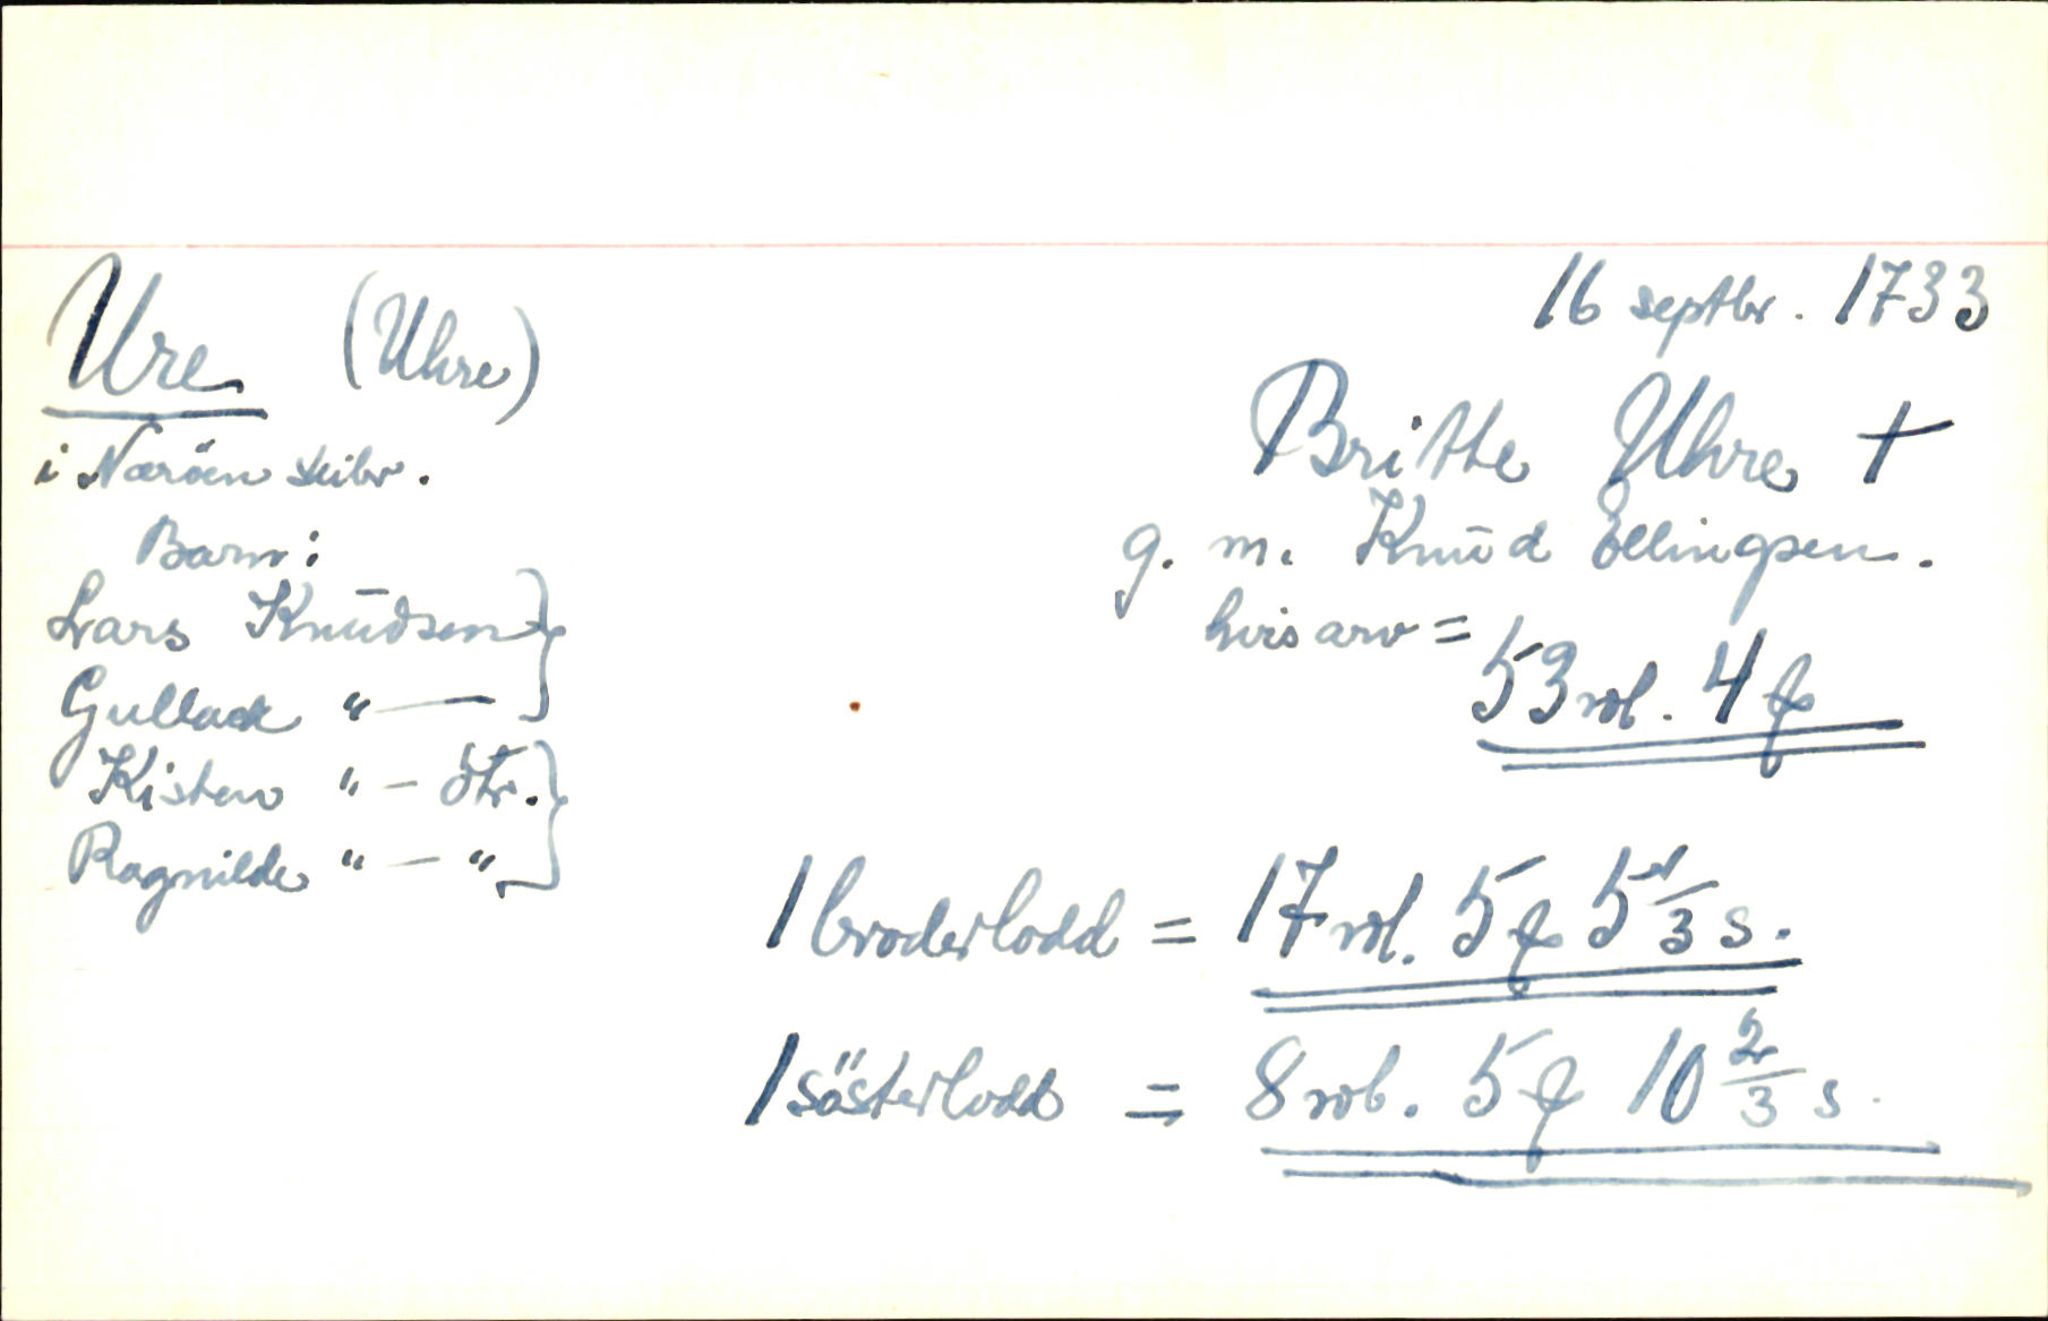 Ure (Uhre)
i Naröen skibr.
Barn:
Lars Knudsen
Gullack " —
Kisten " — dtr.
Ragnilde " — "
16 septbr. 1733
Britte Uhre †
g. m. Knud Ellingsen.
hvis arv =
53 rdl. 4 ƒ
1 broderlodd = 17 rdl. 5 ƒ 5 1/3 s.
1 sösterlodd = 8 rdl. 5 ƒ 10 2/3 s.